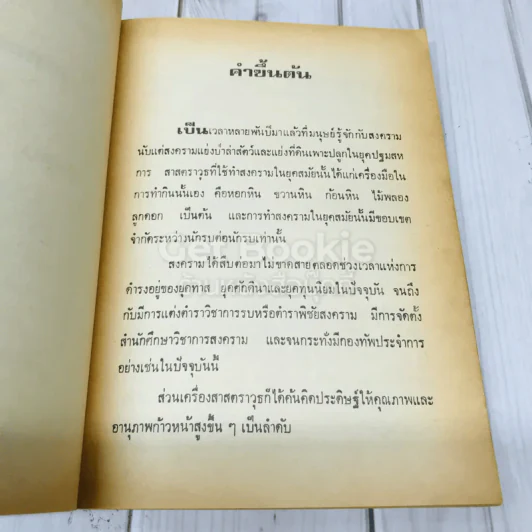 คำขึ้นต้น
เป็นเวลาหลายพันปีมาแล้วที่มนุษย์รู้จักกับสงคราม
นับแต่สงครามแย่งป่าล่าสัตว์และแย่งที่ดินเพาะปลูกในยุคปฐมสห
การ สาสตราวุธที่ใช้ทำสงครามในยุคสมัยนั้นได้แก่เครื่องมือใน
การทำกินนั้นเอง คือหอกหิน ขวานหิน ก้อนหิน ไม้พลอง
ลูกดอก เป็นต้น และการทำสงครามในยุคสมัยนั้นมีขอบเขต
จำกัดระหว่างนักรบต่อนักรบเท่านั้น
Get Bookie
สงครามได้สืบต่อมาไม่ขาดสายตลอดช่วงเวลาแห่งการ
ดำรงอยู่ของยุคทาส ยุคศักดินาและยุคทุนนิยมในปัจจุบัน จนถึง
กับมีการแต่งตำราวิชาการรบหรือตำราพิชัยสงคราม มีการจัดตั้ง
สำนักศึกษาวิชาการสงคราม และจนกระทั่งมีกองทัพประจำการ
อย่างเช่นในปัจจุบันนี้
ส่วนเครื่องสาสตราวุธก็ได้ค้นคิดประดิษฐ์ให้คุณภาพและ
อานุภาพก้าวหน้าสูงขึ้น ๆ เป็นลำดับ